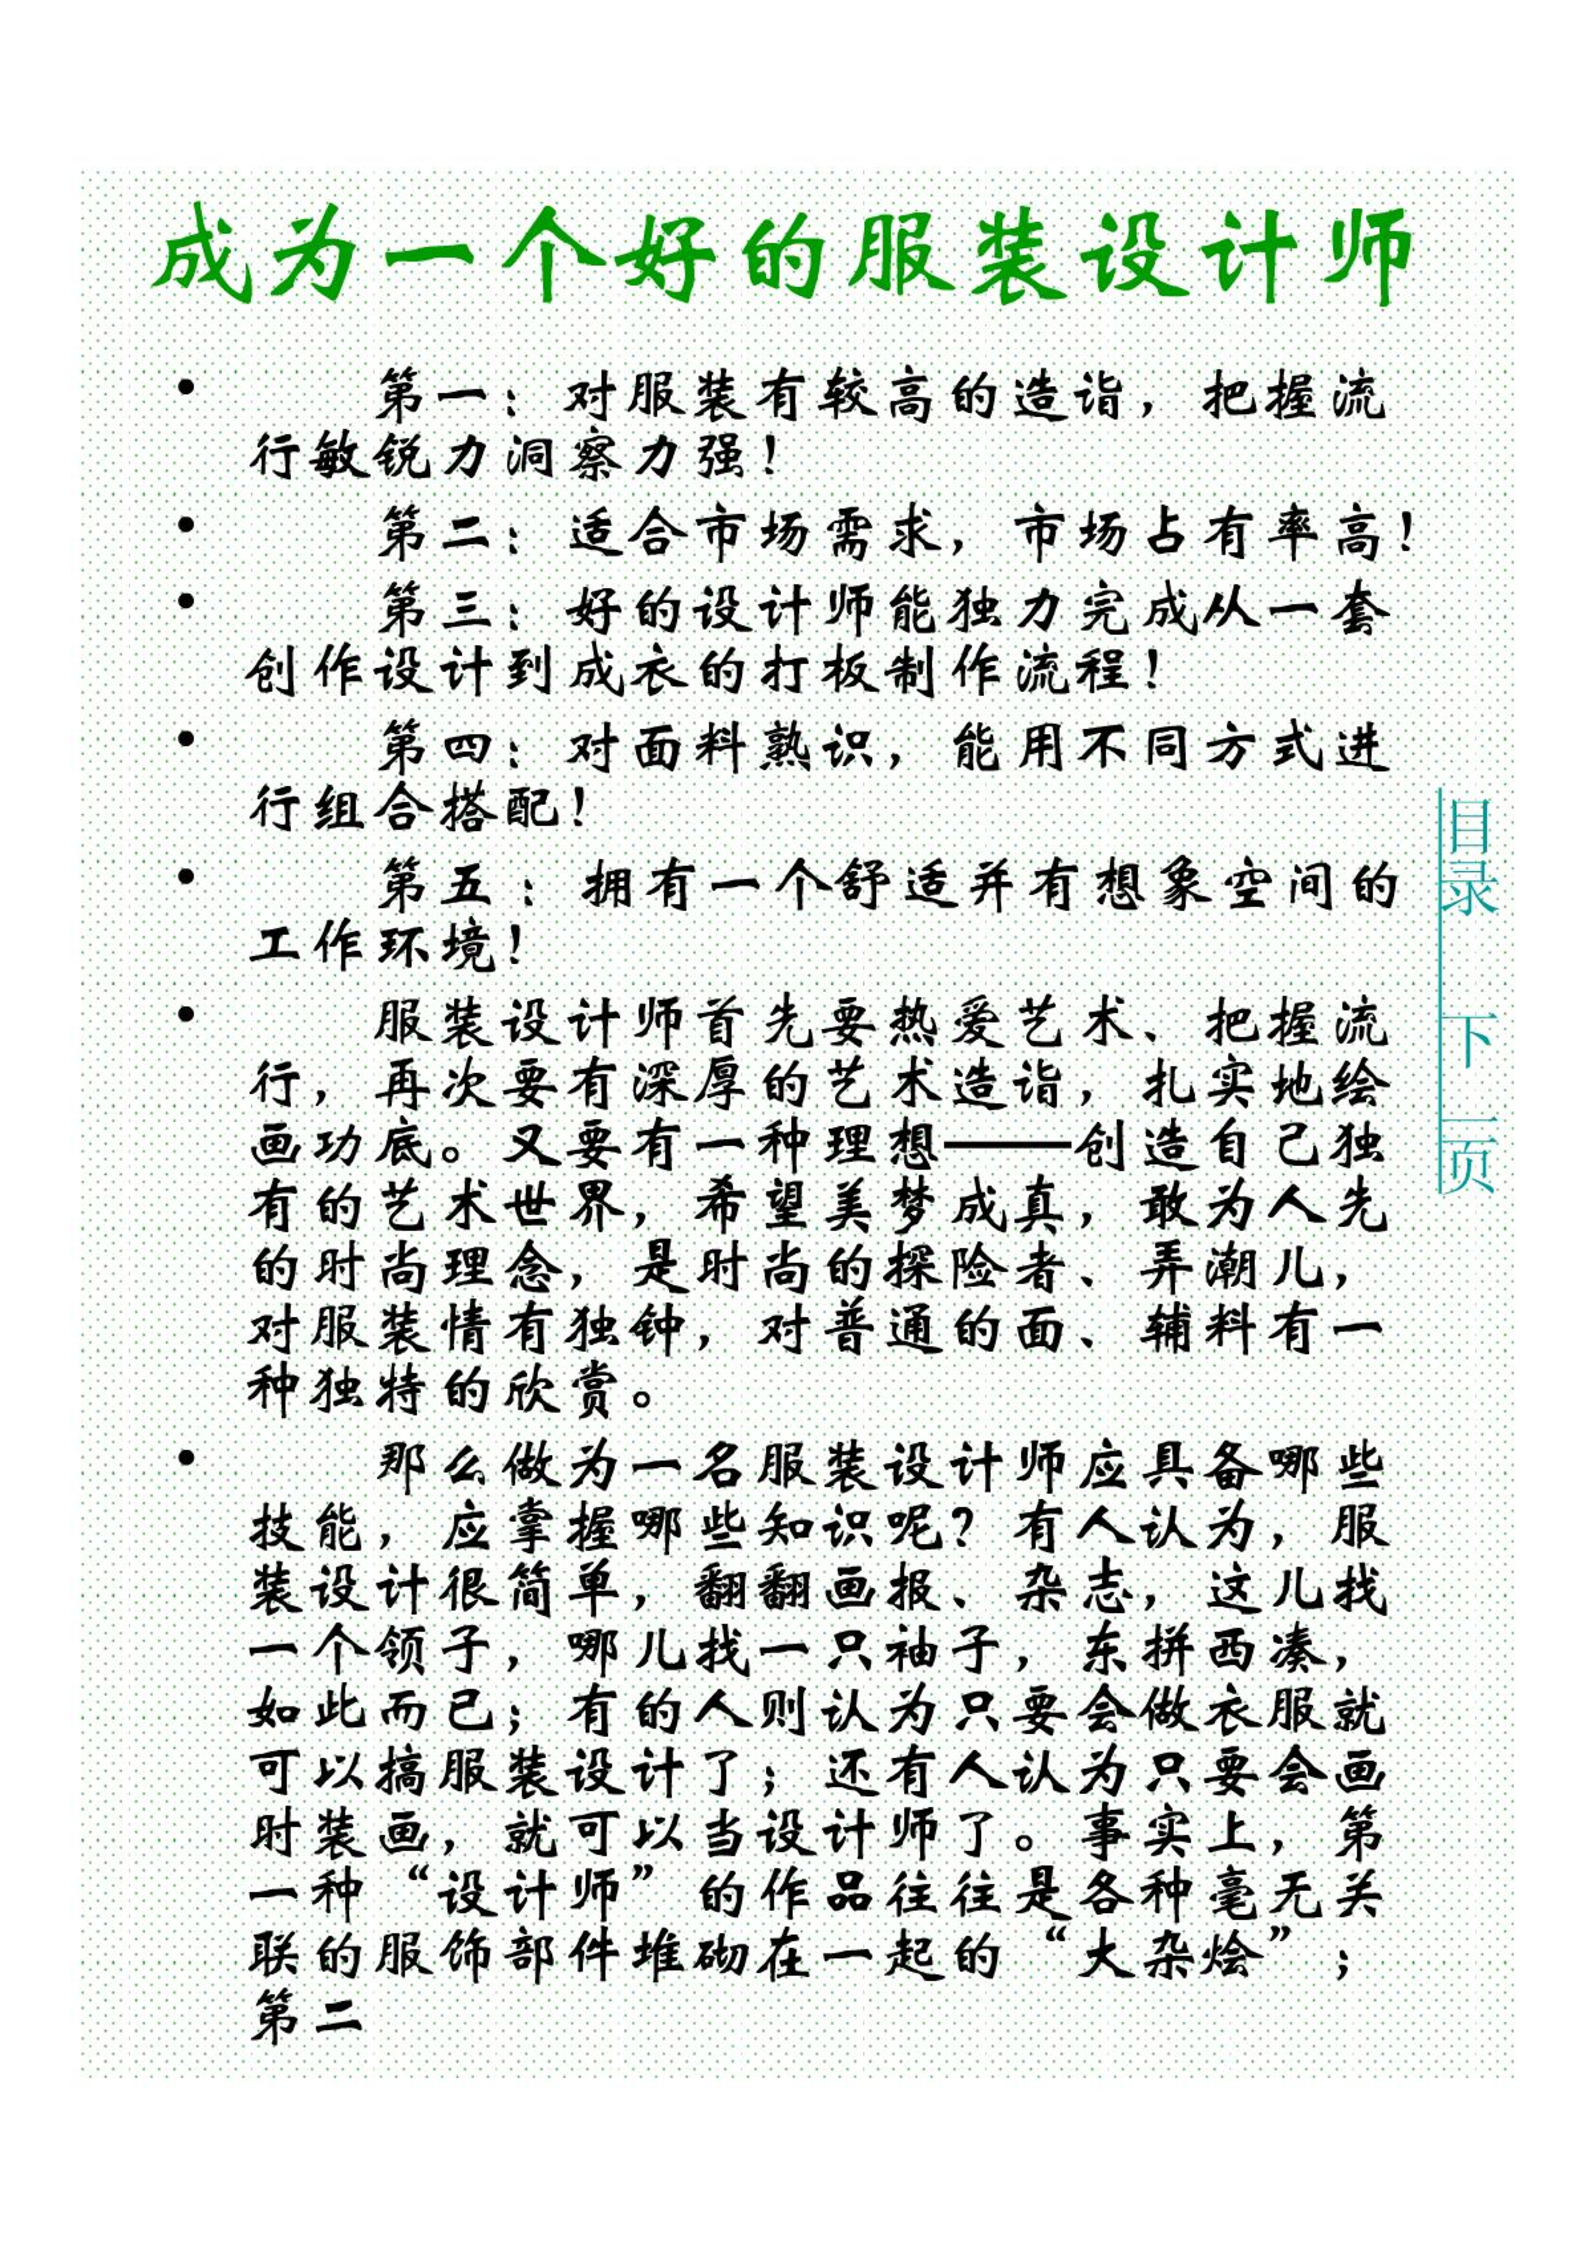 成为一个好的服装设计师
• 第一：对服装有较高的造诣，把握流
行敏锐力洞察力强！
• 第二：适合市场需求，市场占有率高！
• 第三：好的设计师能独力完成从一套
创作设计到成衣的打板制作流程！
• 第四：对面料熟识，能用不同方式进
行组合搭配！
• 第五：拥有一个舒适并有想象空间的
工作环境！
• 服装设计师首先要热爱艺术、把握流
行，再次要有深厚的艺术造诣，扎实地绘
画功底。又要有一种理想——创造自己独
有的艺术世界，希望美梦成真，敢为人先
的时尚理念，是时尚的探险者、弄潮儿，
对服装情有独钟，对普通的面、辅料有一
种独特的欣赏。
• 那么做为一名服装设计师应具备哪些
技能，应掌握哪些知识呢？有人认为，服
装设计很简单，翻翻画报、杂志，这儿找
一个领子，哪儿找一只袖子，东拼西凑，
如此而已；有的人则认为只要会做衣服就
可以搞服装设计了；还有人认为只要会画
时装画，就可以当设计师了。事实上，第
一种“设计师”的作品往往是各种毫无关
联的服饰部件堆砌在一起的“大杂烩”；
第二
目录
下一页